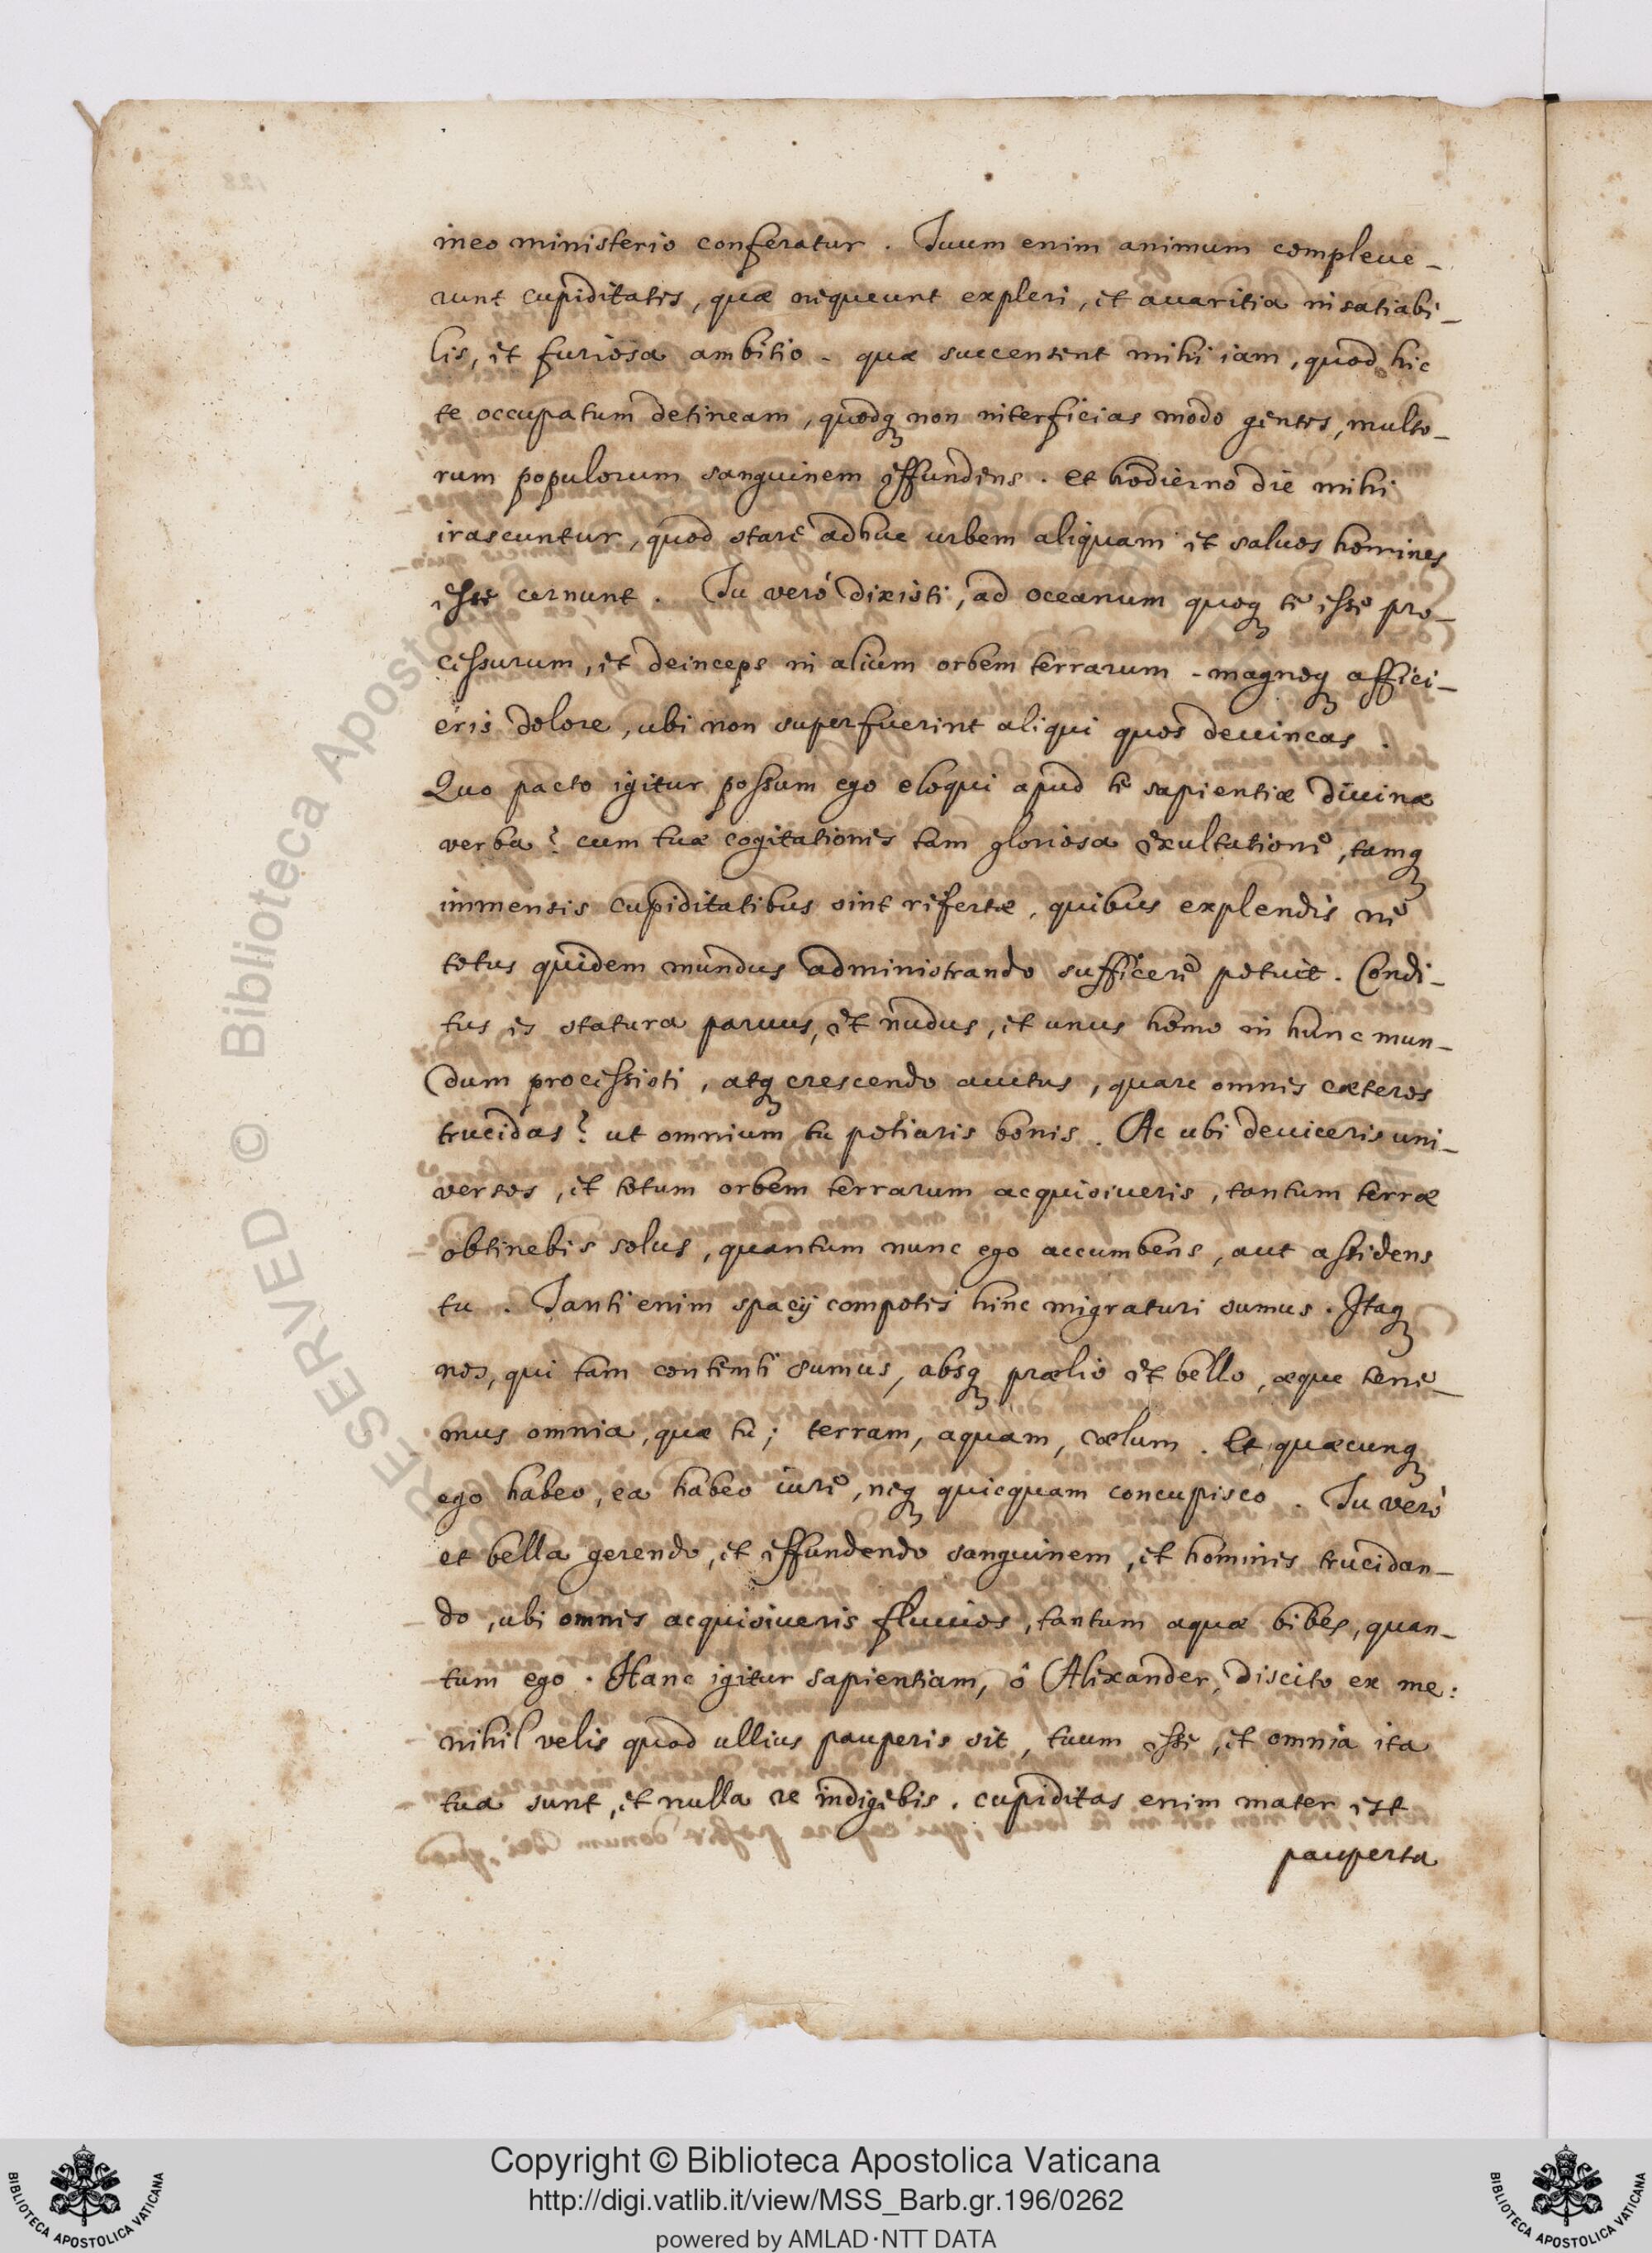 meo ministerio conferatur. Tuum enim animum compleue-
runt cupiditates, quæ nequeunt expleri, et auaritia insatiabi-
lis, et furiosa ambitio. quæ succensent mihi iam, quod hic
te occupatum detineam, quodq; non interficias modo gentes, multo-
rum populorum sanguinem effundens. et hodierno die mihi
irascuntur, quod stare adhuc urbem aliquam et saluos homines
esse cernunt. Tu verò dixisti, ad oceanum quoq; te esse pro-
cessurum, et deinceps in alium orbem terrarum. magnoq; affici-
eris dolore, ubi non superfuerint aliqui quos deuincas.
Quo pacto igitur possum ego eloqui apud te sapientiæ diuinæ
verba? cum tuæ cogitationes tam gloriosa exultatione, tamq;
immensis cupiditatibus sint refertæ, quibus explendis ne
totus quidem mundus administrando sufficere potuit. Condi-
tus es statura paruus, et nudus, et unus homo in hunc mun-
dum processisti, atq; crescendo auctus, quare omnes cæteros
trucidas? ut omnium tu potiaris bonis. Ac ubi deuiceris uni-
versos, et totum orbem terrarum acquisiueris, tantum terræ
obtinebis solus, quantum nunc ego accumbens, aut assidens
tu. Tanti enim spacij compotes hinc migraturi sumus. Itaq;
nos, qui tam contenti sumus, absq; prælio et bello, æque tene-
mus omnia, quæ tu; terram, aquam, cælum. Et quæcunq;
ego habeo, ea habeo iure, neq; quicquam concupisco. Tu verò
et bella gerendo, et effundendo sanguinem, et homines trucidan-
do, ubi omnes acquisiueris fluuios, tantum aquæ bibes, quan-
tum ego. Hanc igitur sapientiam, ô Alexander, discito ex me:
nihil velis quod ullius pauperis sit, tuum esse, et omnia ita
tua sunt, et nulla re indigebis. cupiditas enim mater est
pauperta
RESERVED © Biblioteca Apostolica
Copyright © Biblioteca Apostolica Vaticana
http://digi.vatlib.it/view/MSS_Barb.gr.196/0262
powered by AMLAD·NTT DATA
BIBLIOTECA APOSTOLICA VATICANA
BIBLIOTECA APOSTOLICA VATICANA